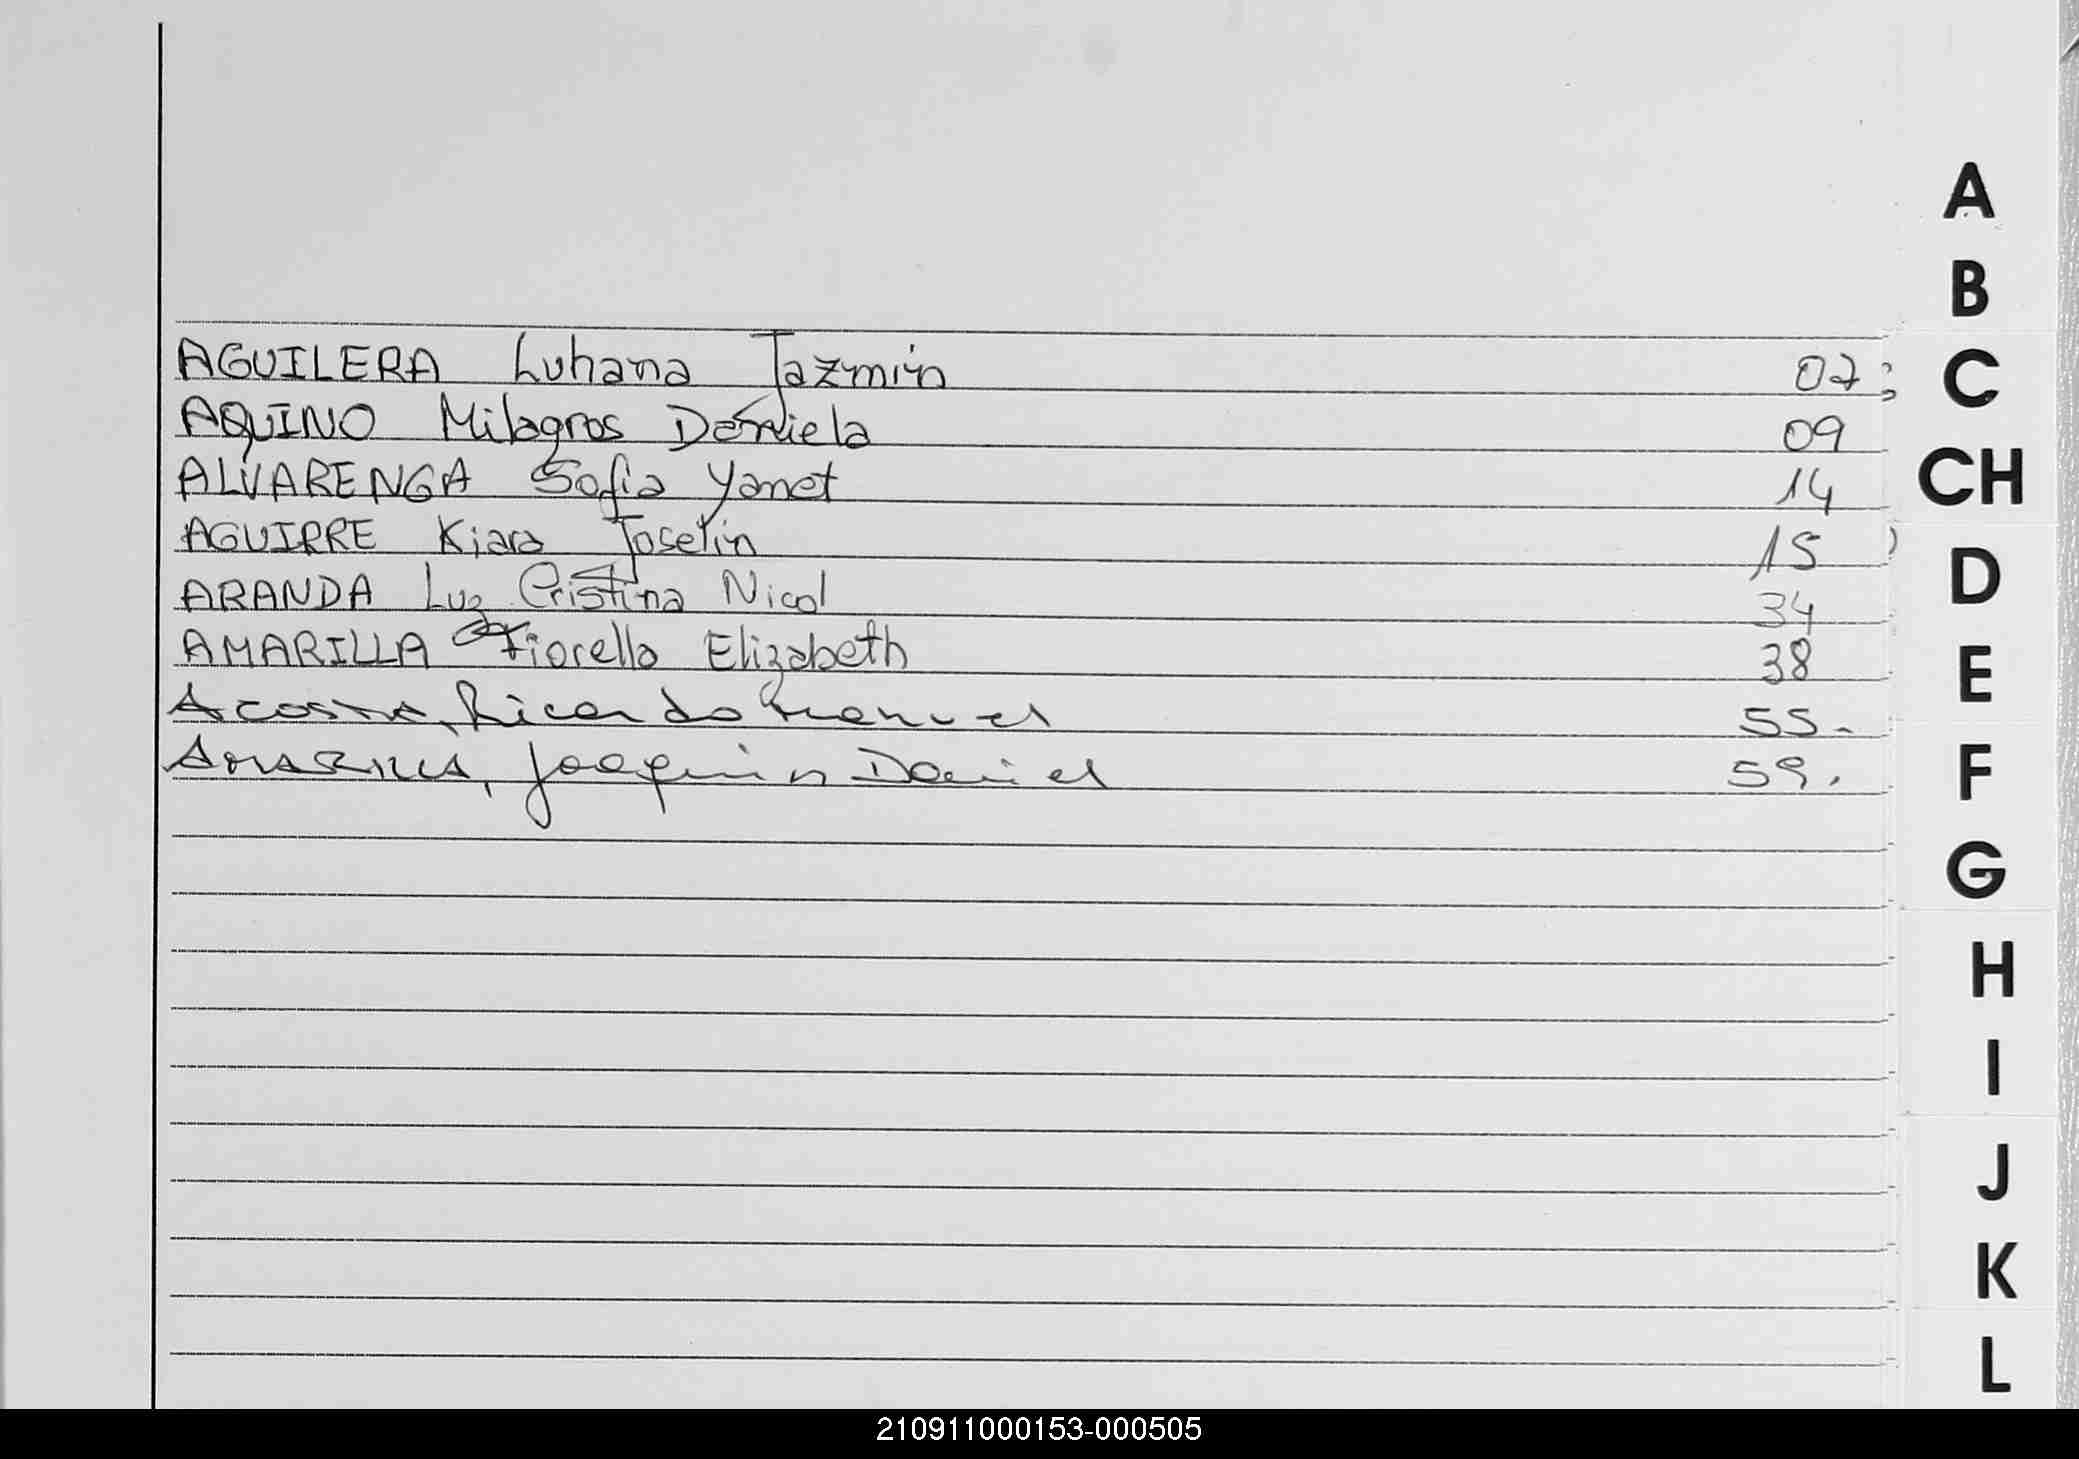 AGUILERA Luhana Jazmín 02
AQUINO Milagros Daniela 09
ALVARENGA Sofia Yanet 14
AGUIRRE Kiara Joselín 15
ARANDA Luz Cristina Nicol 34
AMARILLA Fiorella Elizabeth 38
Acosta, Ricardo Manuel 55.
AMARILLA, Joaquin Daniel 59.
A
B
C
CH
D
E
F
G
H
I
J
K
L
210911000153-000505